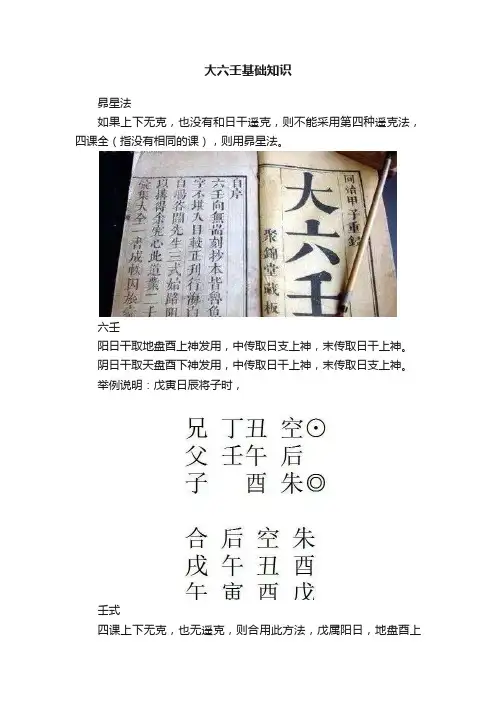 大六壬基础知识
昴星法
如果上下无克，也没有和日干遥克，则不能采用第四种遥克法，
四课全（指没有相同的课），则用昴星法。
同治甲子重鐫
大六壬
聚錦堂藏板
自序
六壬向無善刻抄本皆魯魚
六壬
阳日干取地盘酉上神发用，中传取日支上神，末传取日干上神。
阴日干取天盘酉下神发用，中传取日干上神，末传取日支上神。
举例说明：戊寅日辰将子时，
兄 丁丑 空⊙
父 壬午 后
子 酉 朱◎
合 后 空 朱
戌 午 丑 酉
午 寅 酉 戊
壬式
四课上下无克，也无遥克，则合用此方法，戊属阳日，地盘酉上